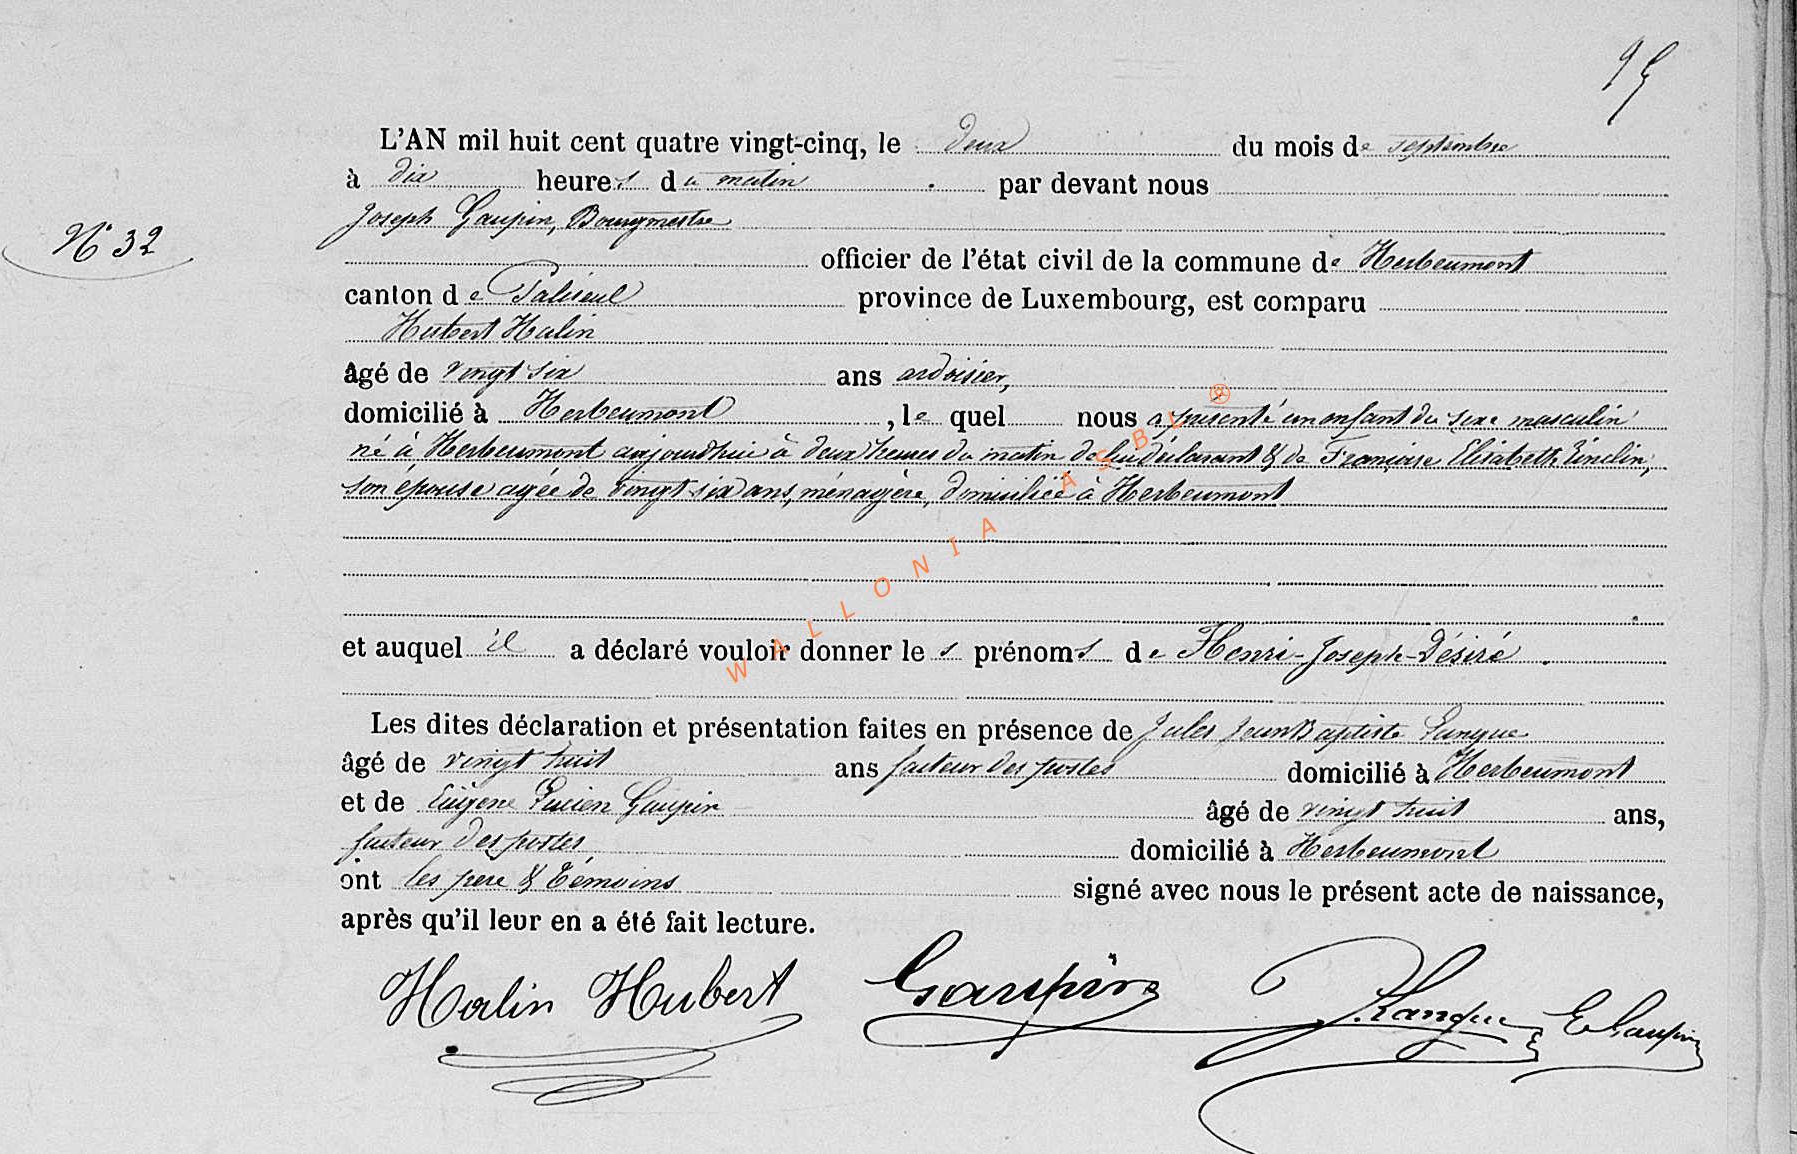 95
L'AN mil huit cent quatre vingt-cinq, le deux du mois de septembre
à dix heures du matin par devant nous
Joseph Gaupin, Bourgmestre
N° 32
officier de l'état civil de la commune de Herbeumont
canton de Paliseul province de Luxembourg, est comparu
Hubert Halin
âgé de vingt six ans ardoisier,
domicilié à Herbeumont, le quel nous a présenté un enfant du sexe masculin
né à Herbeumont aujourd'hui à deux heures du matin de lui déclarant & de Françoise Elisabeth
son épouse agée de vingt six ans, ménagère, domiciliée à Herbeumont
et auquel il a déclaré vouloir donner les prénoms de Henri-Joseph-Désiré.
Les dites déclaration et présentation faites en présence de Jules Jean Baptiste Langue
âgé de vingt huit ans facteur des postes domicilié à Herbeumont
et de Eugène Lucien Gaupin âgé de vingt huit ans,
facteur des postes domicilié à Herbeumont
ont les père & témoins signé avec nous le présent acte de naissance,
après qu'il leur en a été fait lecture.
Halin Hubert Gaupin J. Langue E Gaupin
WALLONIA ASBL ®